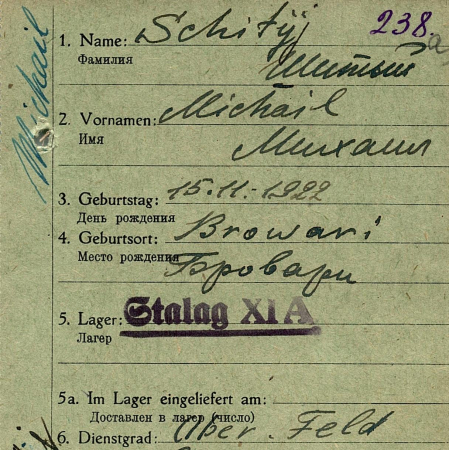 Michail
238.
a
1. Name: Schityj
Фамилия Шитый
2. Vornamen: Michail
Имя Михаил
3. Geburtstag: 15.11.-1922
День рождения
4. Geburtsort: Browari
Место рождения Бровари
5. Lager: Stalag XI A
Лагер
5a. Im Lager eingeliefert am:
Доставлен в лагер (число)
6. Dienstgrad: Ober. Feld